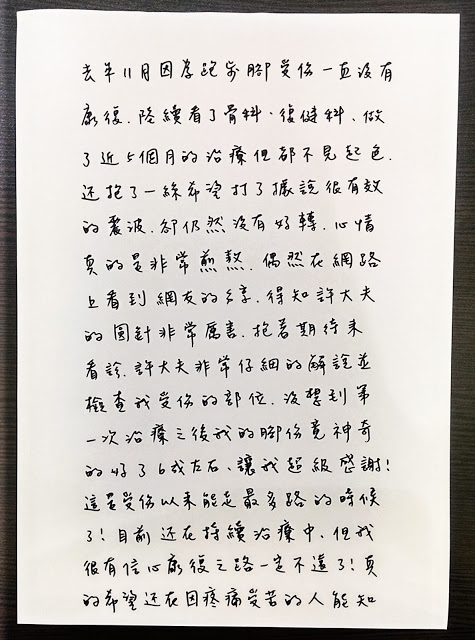 去年11月因為跑步腳受伤一直沒有
康復．陸續看了骨科、復健科、做
了近5個月的治療但都不見起色．
还抱了一絲希望打了據說很有效
的震波．卻仍然沒有好轉．心情
真的是非常煎熬．偶然在網路
上看到網友的分享．得知許大夫
的圓針非常厲害．抱著期待來
看診．許大夫非常仔細的解說並
檢查我受伤的部位．沒想到第
一次治療之後我的腳伤竟神奇
的好了6成左右、讓我超級感謝！
這是受伤以來能走最多路的時候
了！目前还在持續治療中．但我
很有信心康復之路一定不遠了！真
的希望还在因疼痛受苦的人能知